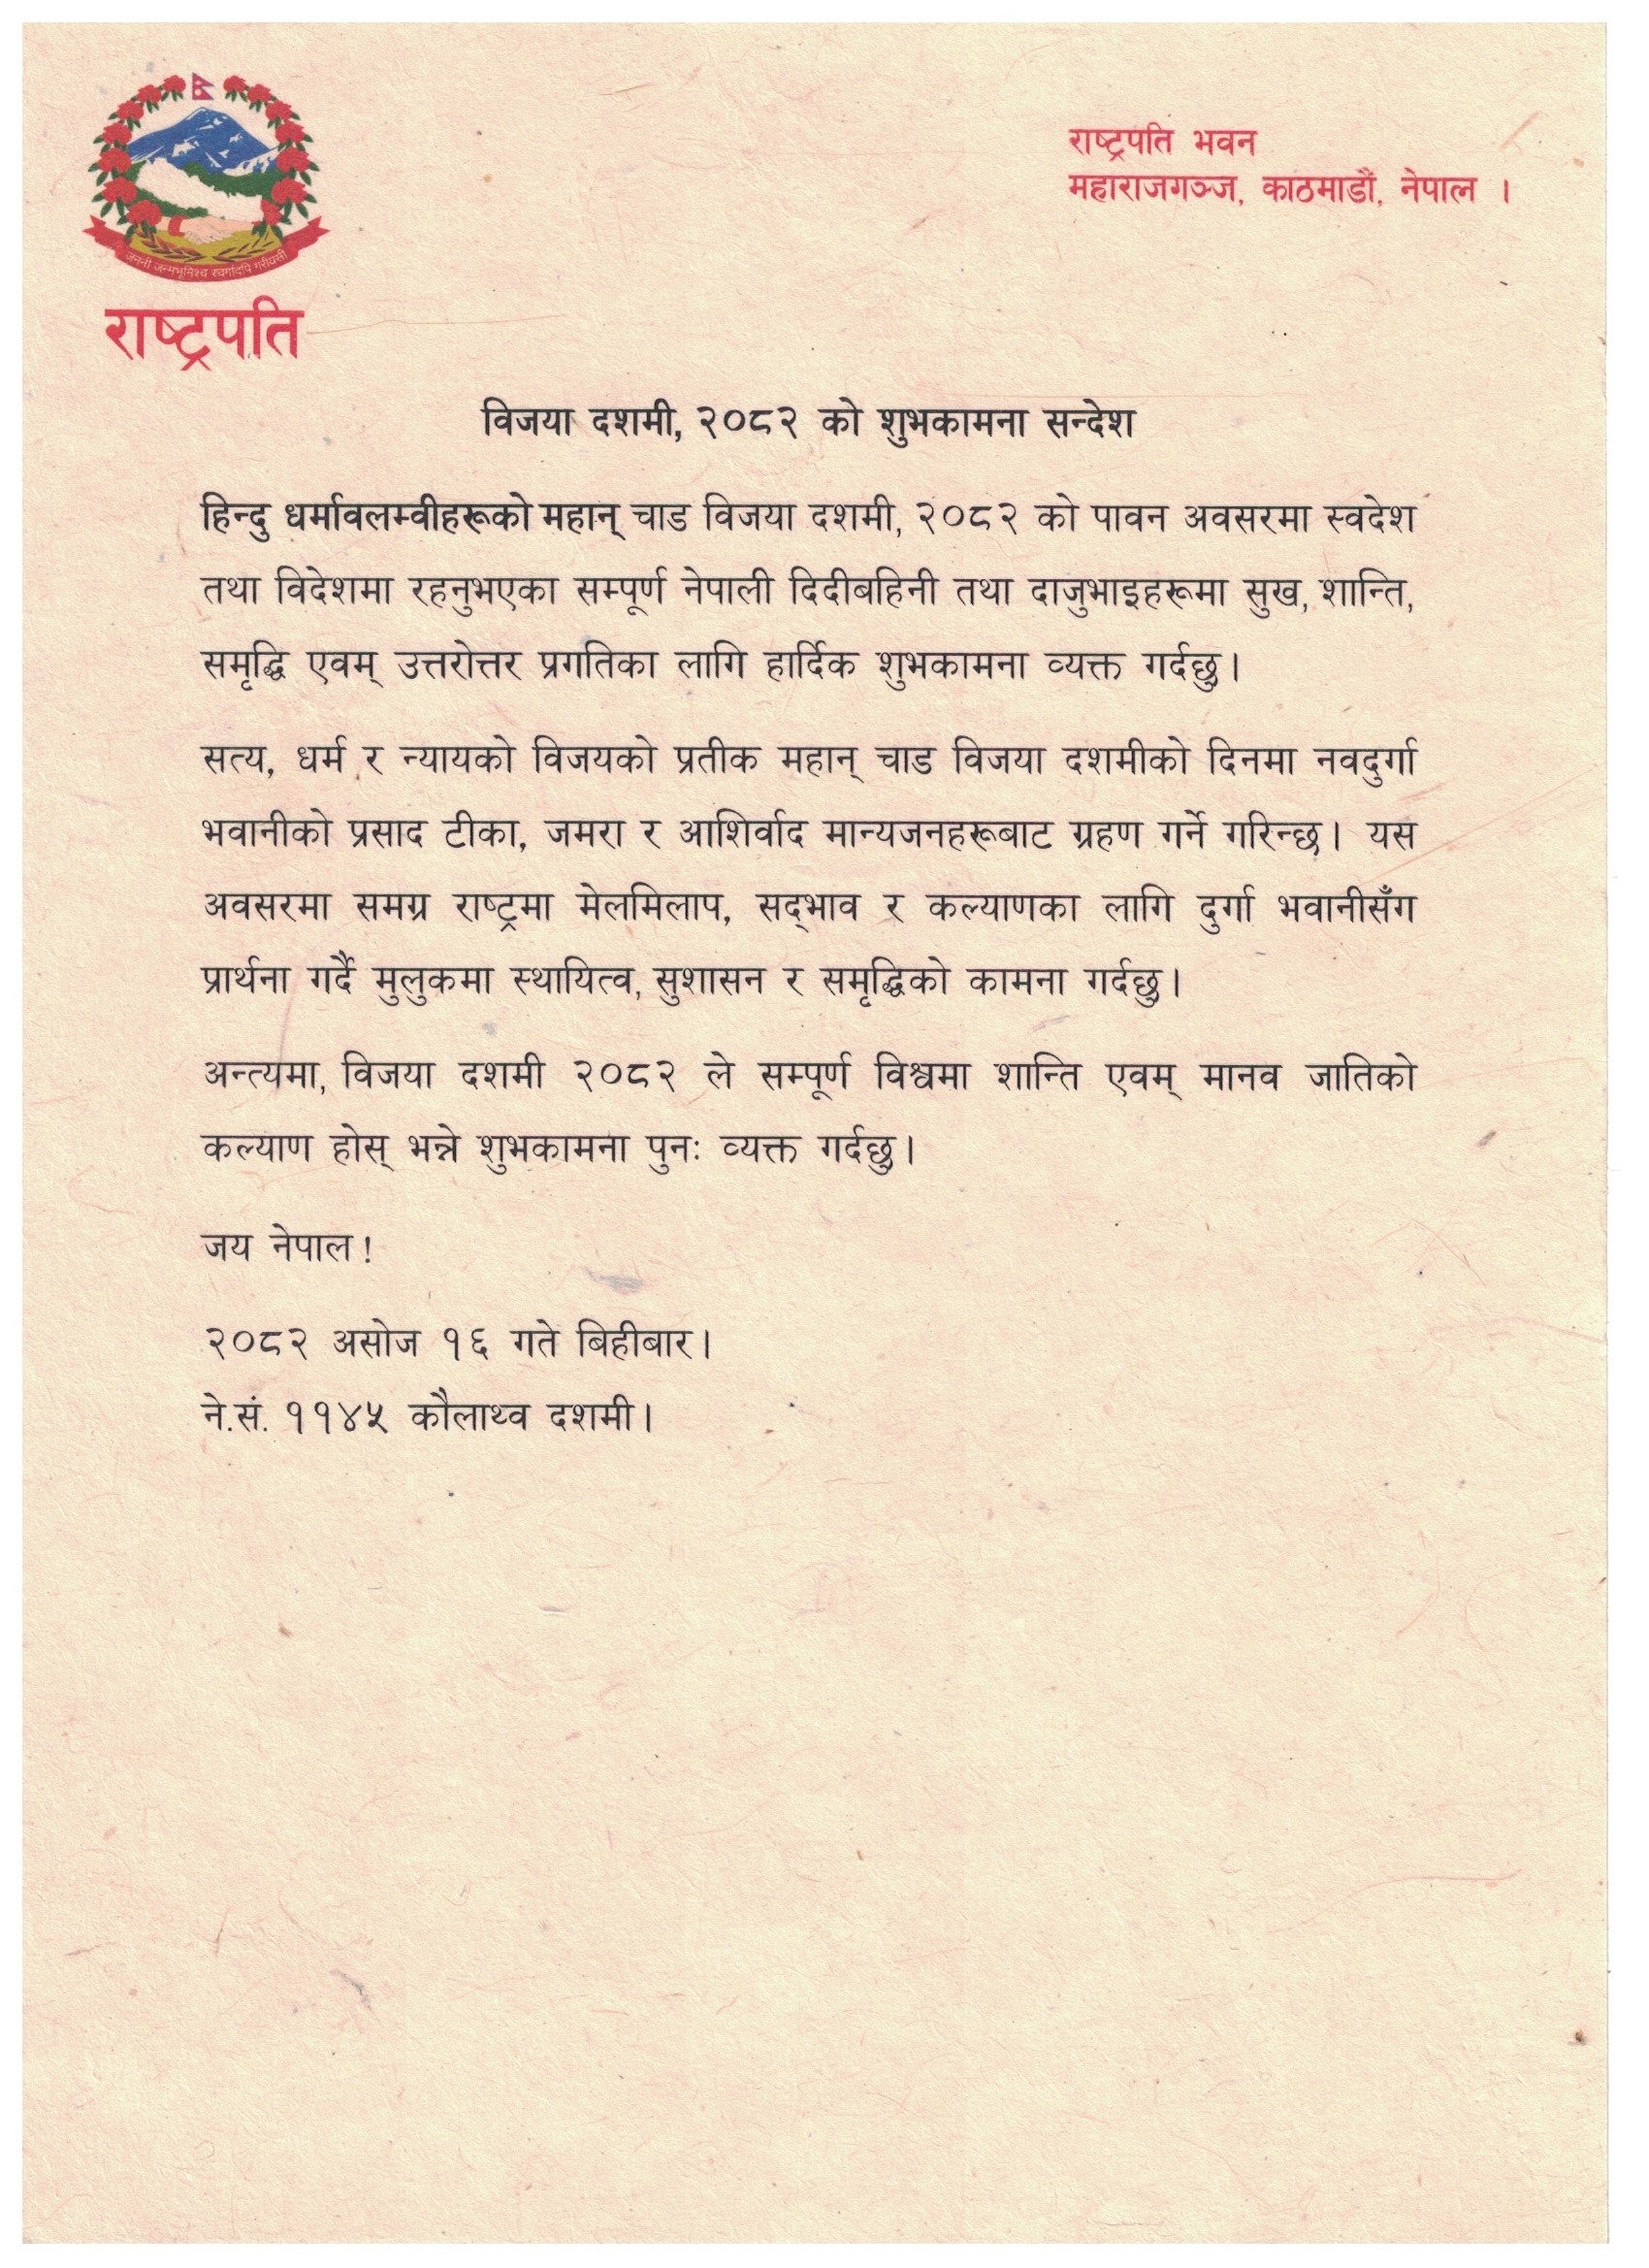 राष्ट्रपति भवन
महाराजगञ्ज, काठमाडौं, नेपाल ।
जननी जन्मभूमिश्च स्वर्गादपि गरीयसी
राष्ट्रपति
विजया दशमी, २०८२ को शुभकामना सन्देश
हिन्दु धर्मावलम्वीहरूको महान् चाड विजया दशमी, २०८२ को पावन अवसरमा स्वदेश
तथा विदेशमा रहनुभएका सम्पूर्ण नेपाली दिदीबहिनी तथा दाजुभाइहरूमा सुख, शान्ति,
समृद्धि एवम् उत्तरोत्तर प्रगतिका लागि हार्दिक शुभकामना व्यक्त गर्दछु।
सत्य, धर्म र न्यायको विजयको प्रतीक महान् चाड विजया दशमीको दिनमा नवदुर्गा
भवानीको प्रसाद टीका, जमरा र आशिर्वाद मान्यजनहरूबाट ग्रहण गर्ने गरिन्छ। यस
अवसरमा समग्र राष्ट्रमा मेलमिलाप, सद्‌भाव र कल्याणका लागि दुर्गा भवानीसँग
प्रार्थना गर्दै मुलुकमा स्थायित्व, सुशासन र समृद्धिको कामना गर्दछु।
अन्त्यमा, विजया दशमी २०८२ ले सम्पूर्ण विश्वमा शान्ति एवम् मानव जातिको
कल्याण होस् भन्ने शुभकामना पुनः व्यक्त गर्दछु।
जय नेपाल!
२०८२ असोज १६ गते बिहीबार।
ने.सं. ११४५ कौलाथ्व दशमी।